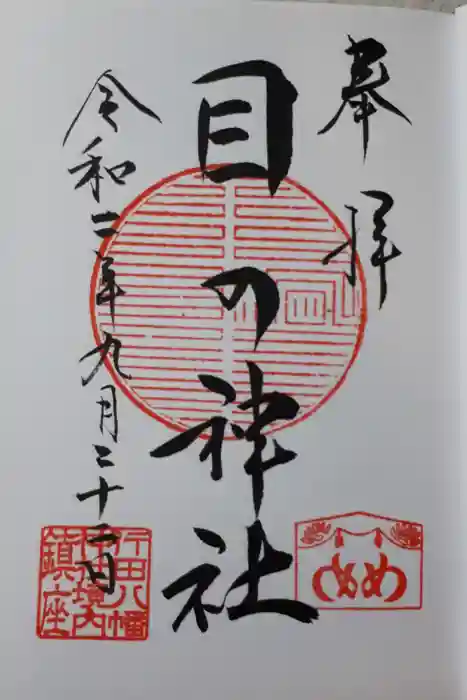 奉拝
目の神社
令和二年九月二十二日
行田八幡
神社境内
鎮座
め め